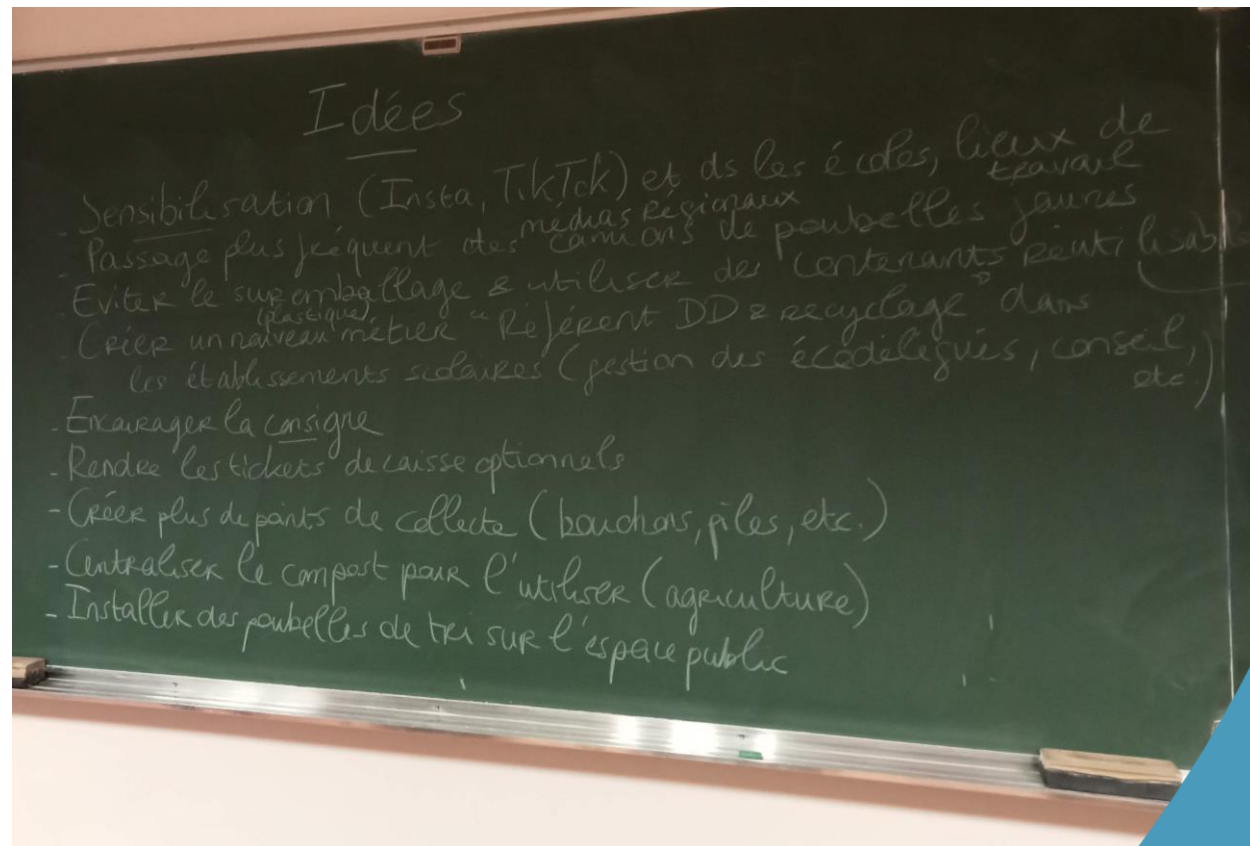 Idées
- Sensibilisation (Insta, TikTok) et ds les écoles, lieux de
travail
médias régionaux
- Passage plus fréquent des camions de poubelles jaunes
- Eviter le suremballage & utiliser des contenants réutilisables
(plastique)
- Créer un nouveau métier "Référent DD & recyclage" dans
les établissements scolaires (gestion des écodélégués, conseil,
etc.)
- Encourager la consigne
- Rendre les tickets de caisse optionnels
- Créer plus de points de collecte (bouchons, piles, etc.)
- Centraliser le compost pour l'utiliser (agriculture)
- Installer des poubelles de tri sur l'espace public